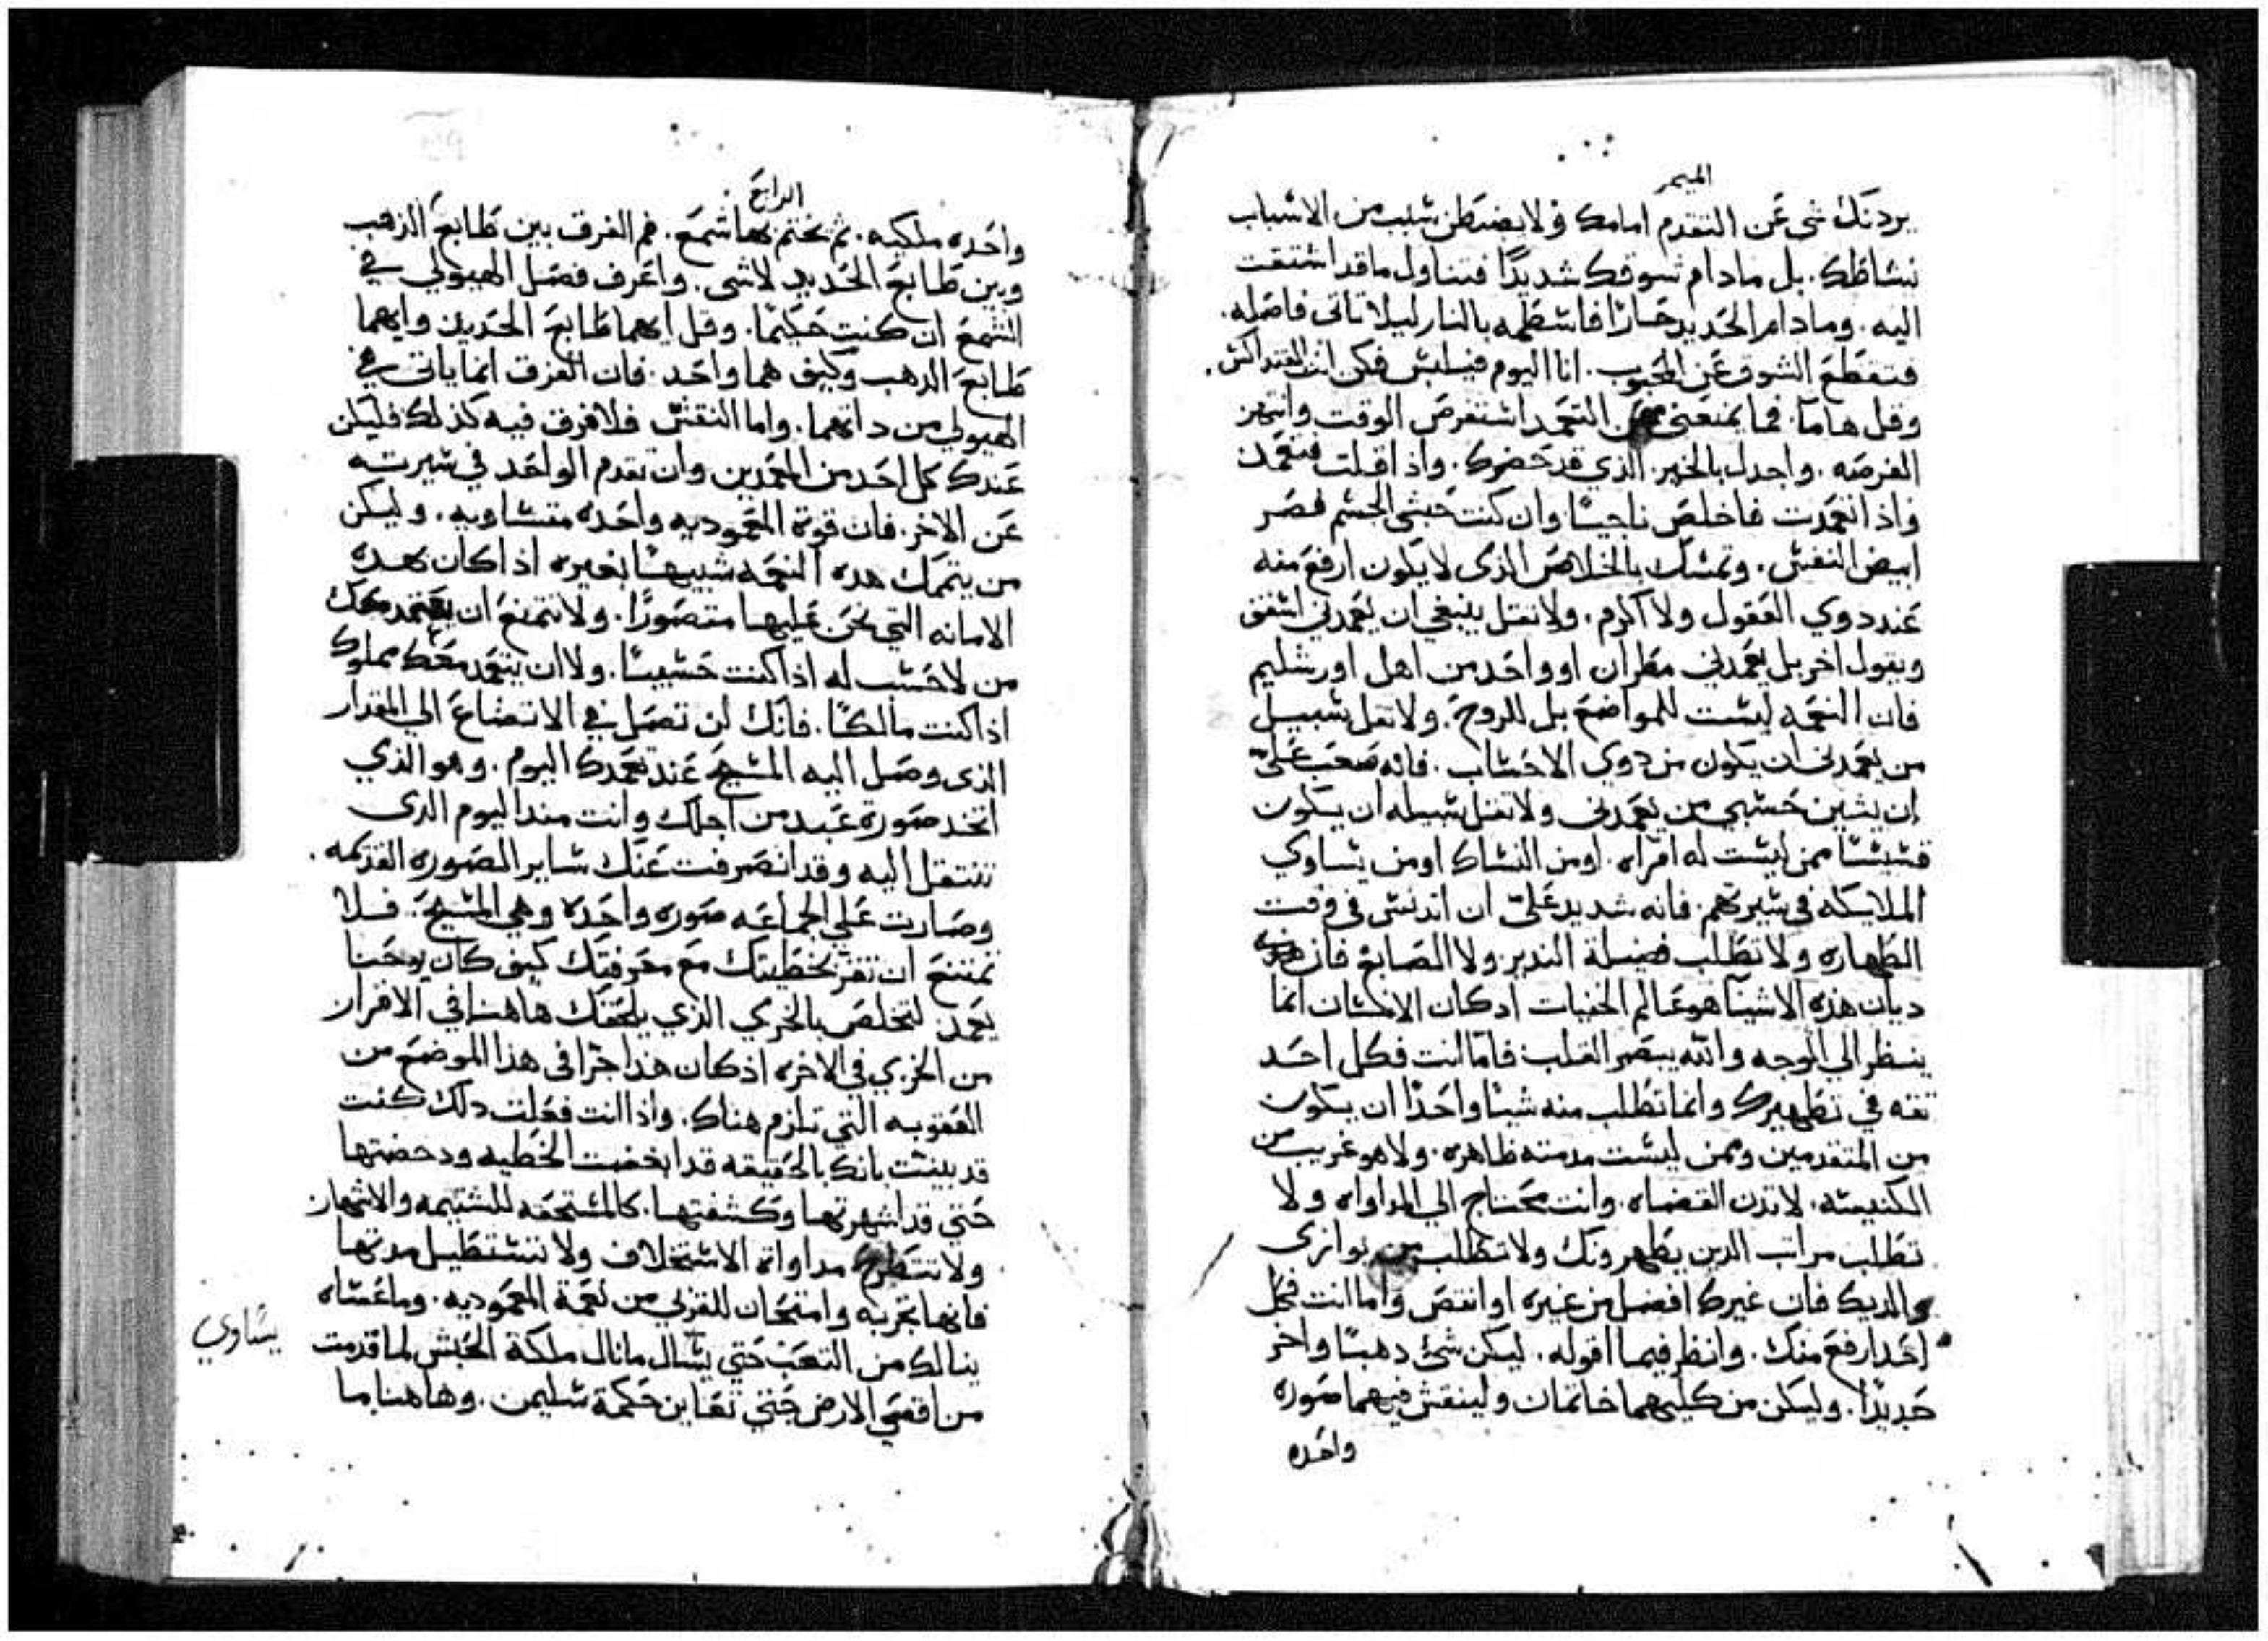 الميمر
يردنك شى عن التقدم امامك ولا يضبطن شيب من الاسباب
نشاطك. بل مادام شوقك شديدًا فتناول ماقد اشتقت
اليه. ومادام الحديد حارًا فاسطمه بالنار ليلا تاتى فاصله.
فتقطع الشوق عن المحبوب. انا اليوم فيلبس فكن انت القنداكس.
وقل هاما. فما يمنعنى من التعمد استفرص الوقت وانتهز
الفرصه. واجدل بالخير الذي قد حضرك. واذ اقبلت فتعمد
واذا تعمدت فاخلص ناجيًا وان كنت حبشى الجسم فصر
ابيض النفس. وتمسك بالخلاص الذى لا يكون ارفع منه
عند دوي العقول ولا اكرم. ولا تقل ينبغي ان يعمدني اسقف
ويقول اخر بل يعمدني مطران او واحد من اهل اورشليم
فان النعمه ليست للمواضع بل للروح. ولا تقل سبيل
من يعمدنى ان يكون من دوي الاحساب. فانه صعب علىّ
ان يشين حسبى من يعمدنى ولا تقل سبيله ان يكون
قسيسًا ممن ليست له امراه. او من النساك او من يساوي
الملايكه في سيرتهم. فانه شديد علىّ ان اتدنس فى وقت
الطهاره ولا تطلب فضيلة النذير ولا الصابغ فان
ديان هذه الاشيا هو عالم الخفيات ادكان الانسان انما
ينظر الي الوجه والله يبصر القلب فاما انت فكل احد
تقه في تطهيرك وانما تطلب منه شيا واحدًا ان يكون
من المتقدمين وممن ليست مدمته ظاهره. ولا هو غريب من
الكنيسه. لا تدن القضاه. وانت محتاج الي المداواه ولا
تطلب مراتب الدين يطهرونك ولا تطلب من يوازى
والديك فان غيرك افضل من غيره او انقص واما انت فكل
احد ارفع منك. وانظر فيما اقوله. ليكن شئ دهبًا واخر
حديدًا. وليكن من كليهما خاتمان ولينقش فيهما صوره
واحده
الرابع
واحده ملكيه. ثم نختم بهما شمع. فم الفرق بين طابع الذهب
وبين طابع الحديد لاشى. واعرف فصل الهيولي في
الشمع ان كنت حكيمًا. وقل ايهما طابع الحديد وايهما
طابع الدهب وكيف هما واحد. فان الفرق انما ياتى في
الهيولي من داتهما. واما النقش فلا فرق فيه كذلك فليكن
عندك كل احد من المعمدين وان تقدم الواحد في سيرته
عن الاخر. فان قوة المعموديه واحده متساويه. وليكن
من يتممك هده النعمه شبيهًا بغيره اذا كان بهده
الامانه التي نحن عليها متصورًا. ولا تتمنع ان يعتمد معك
من لا حسب له اذا كنت حسيبًا. ولا ان يتعمد معك مملوك
اذا كنت مالكًا. فانك لن تصل في الاتضاع الي المقدار
الذى وصل اليه المسيح عند تعمدك اليوم. وهو الذي
اتخد صورة عبد من اجلك وانت مند اليوم الدى
تنتقل اليه وقد انصرفت عنك ساير الصوره القديمه.
وصارت علي الجماعه صوره واحده وهي المسيح. فلا
تمتنع ان تقر بخطيتك مع معرفتك كيف كان يوحنا
يعمد لتخلص بالخزي الذي يلحقك هاهنا في الاقرار
من الخزي في الاخره اذ كان هدا جزا فى هذا الموضع من
العقوبه التي تلزم هناك. واذا انت فعلت دلك كنت
قد بينت بانك بالحقيقه قد ابغضت الخطيه ودحضتها
حتي قد اشهرتها وكشفتها. كالمستحقه للشتيمه والاشهار
ولا تتطرح مداواة الاستحلاف ولا تستطيل مدتها
فانها تجربه وامتحان للقربي من نعمة المعموديه. وما عساه
ينالك من التعب حتي يسال مانال ملكة الحبش لما قدمت
من اقصي الارض حتي تعاين حكمة سليمن. وهاهنا ما
يساوي